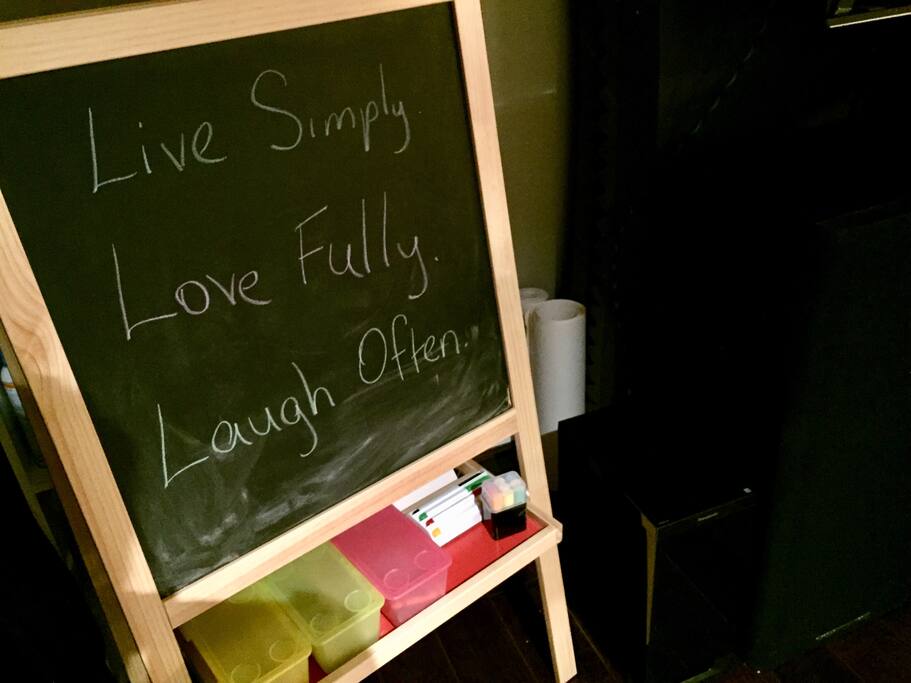 Live Simply.
Love Fully.
Laugh Often.